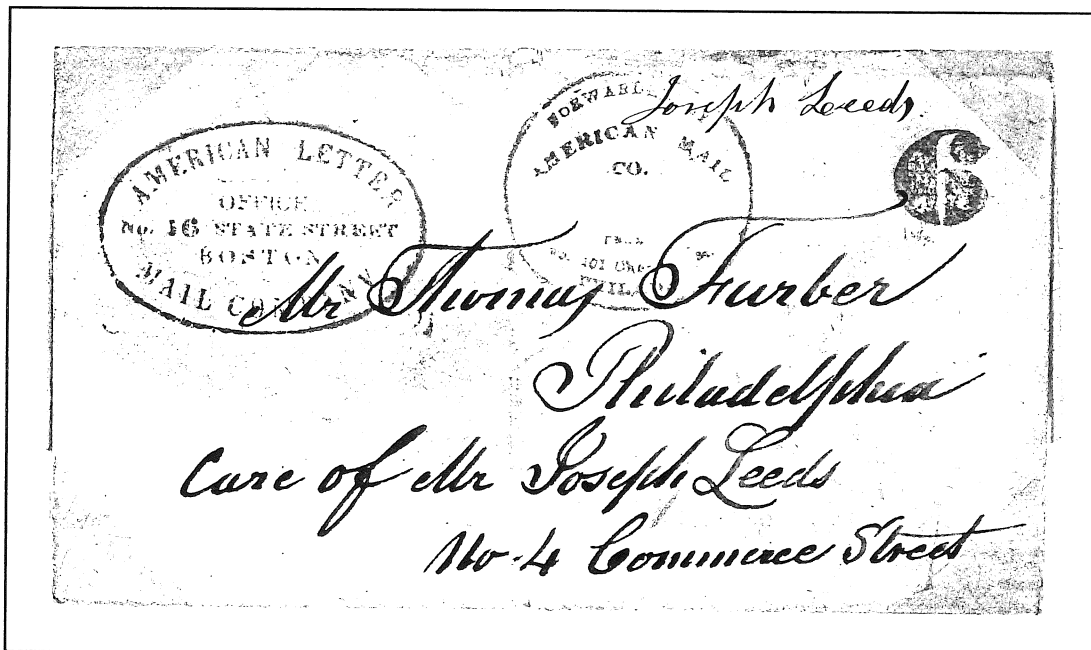 AMERICAN LETTER
OFFICE
No. 16 STATE STREET
BOSTON
MAIL COMPANY
AMERICAN MAIL
CO.
No. 101
PHILA
Joseph Leeds.
6
Mr Thomas Furber
Philadelphia
Care of Mr Joseph Leeds
No 4 Commerce Street